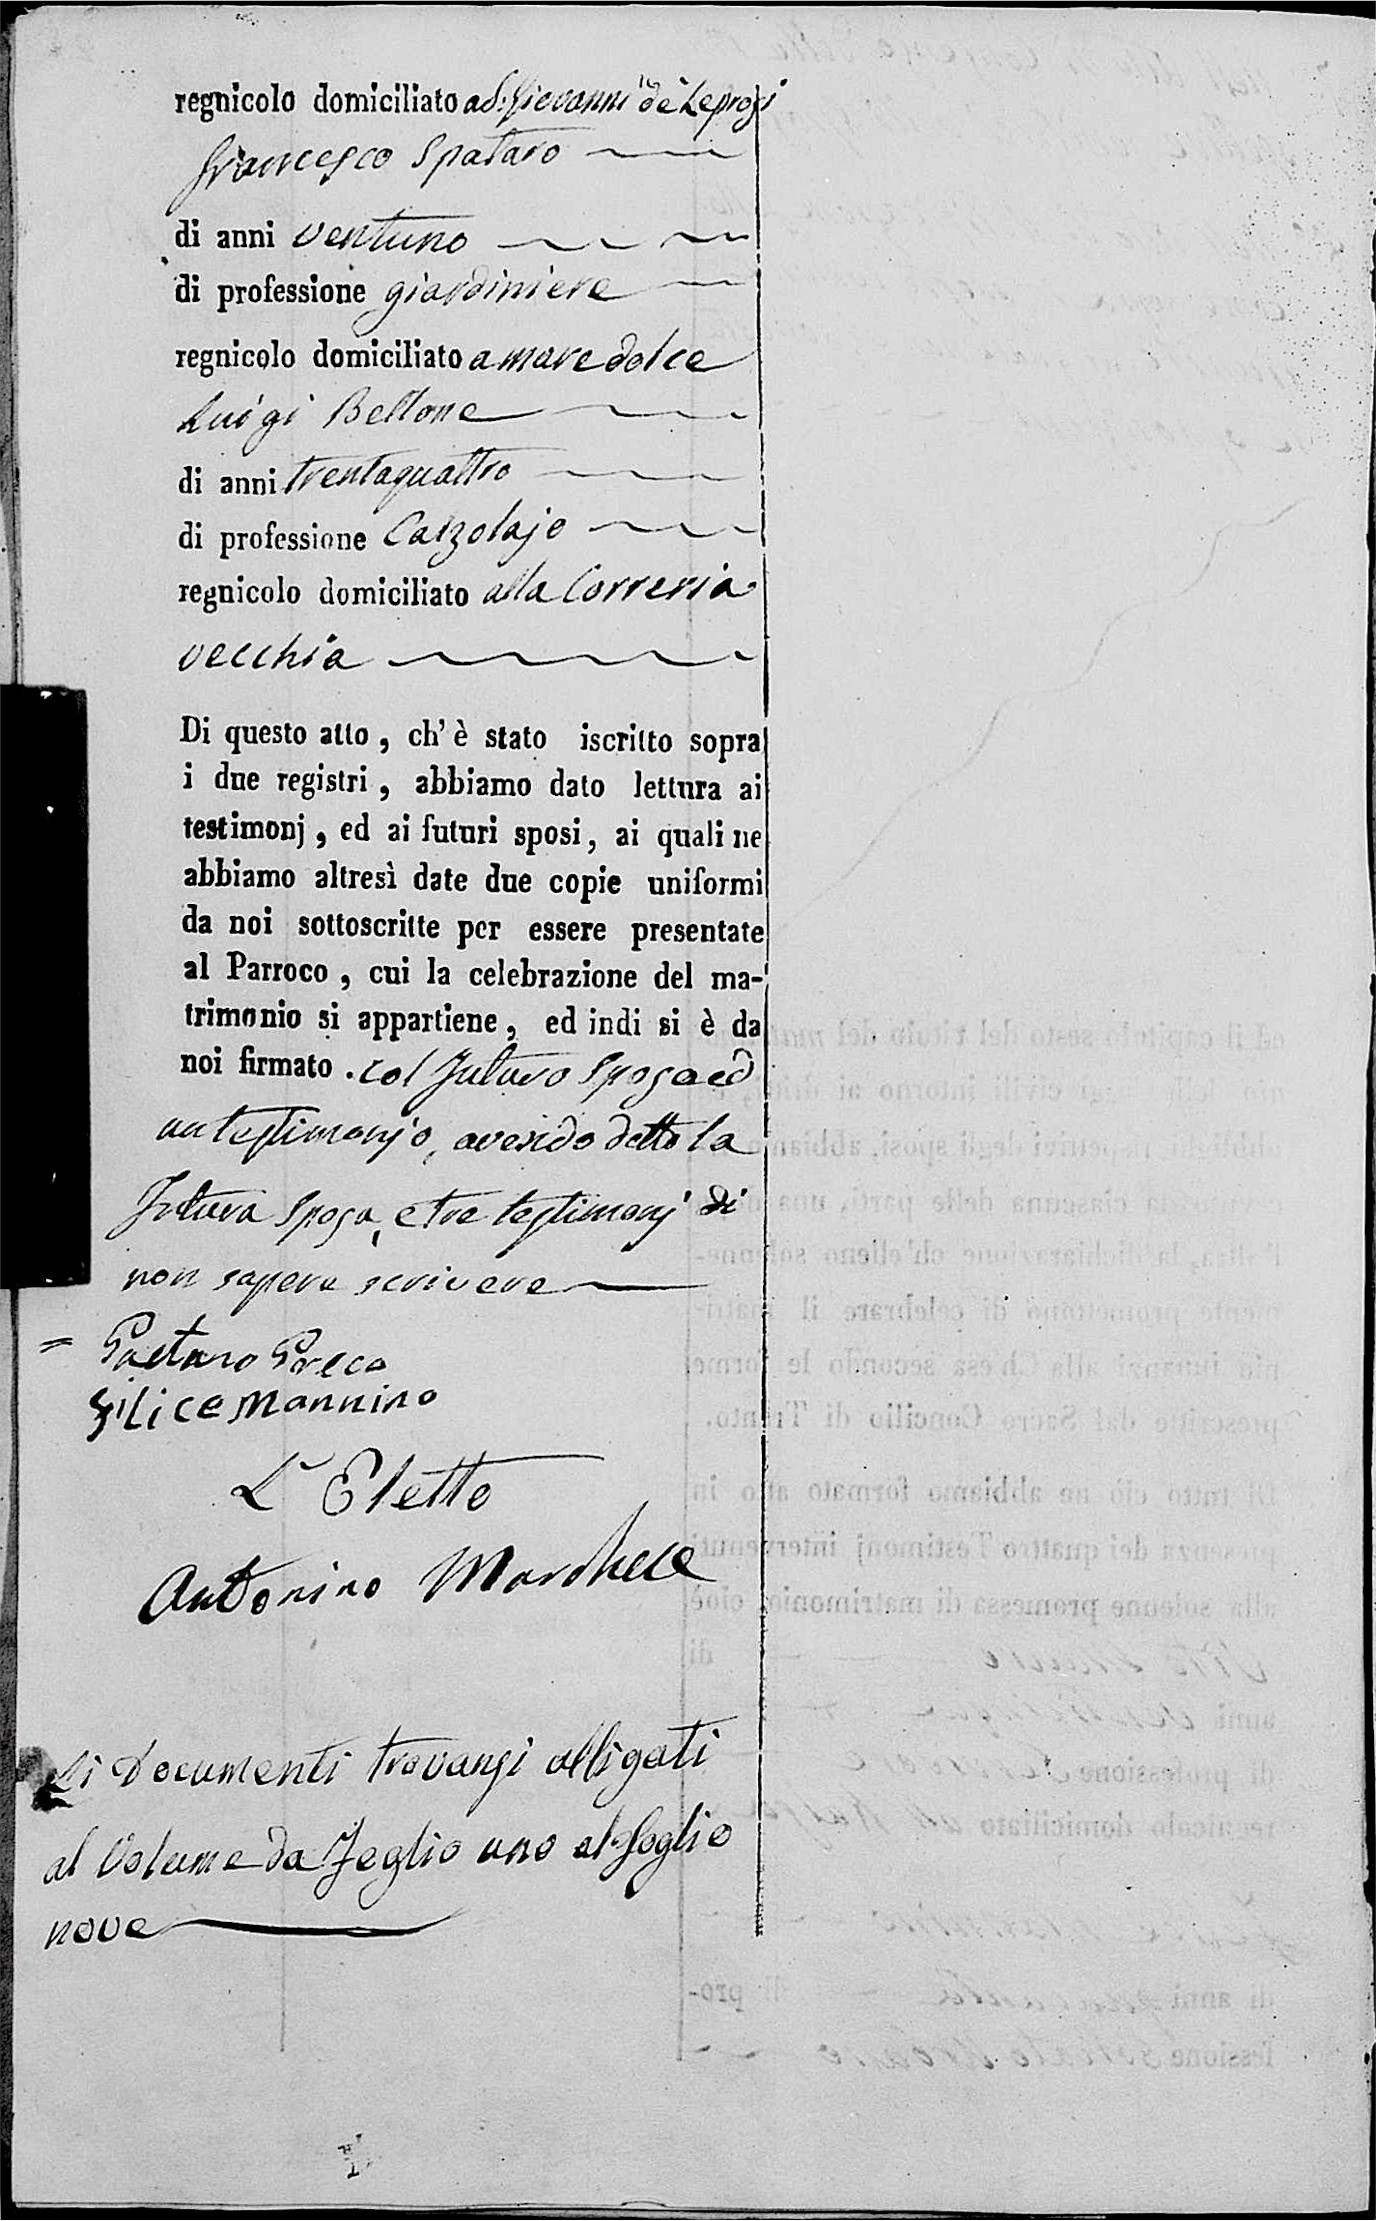 regnicolo domiciliato a S. Giovanni de' Leprosi
Francesco Spataro
di anni ventuno
di professione giardiniere
regnicolo domiciliato a mare dolce
Luigi Bellone
di anni trentaquattro
di professione Calzolajo
regnicolo domiciliato alla Correria
vecchia
Di questo atto, ch'è stato iscritto sopra
i due registri, abbiamo dato lettura ai
testimonj, ed ai futuri sposi, ai quali ne
abbiamo altresì date due copie uniformi
da noi sottoscritte per essere presentate
al Parroco, cui la celebrazione del ma-
trimonio si appartiene, ed indi si è da
noi firmato. col Futuro Sposo ed
un testimonjo, avendo detto la
Futura Sposa, e tre testimonj di
non sapere scrivere
= Gaetano Greco
Filice Mannino
L'Eletto
Antonino Marchese
Li Documenti trovansi alligati
al Volume da Foglio uno al foglio
nove